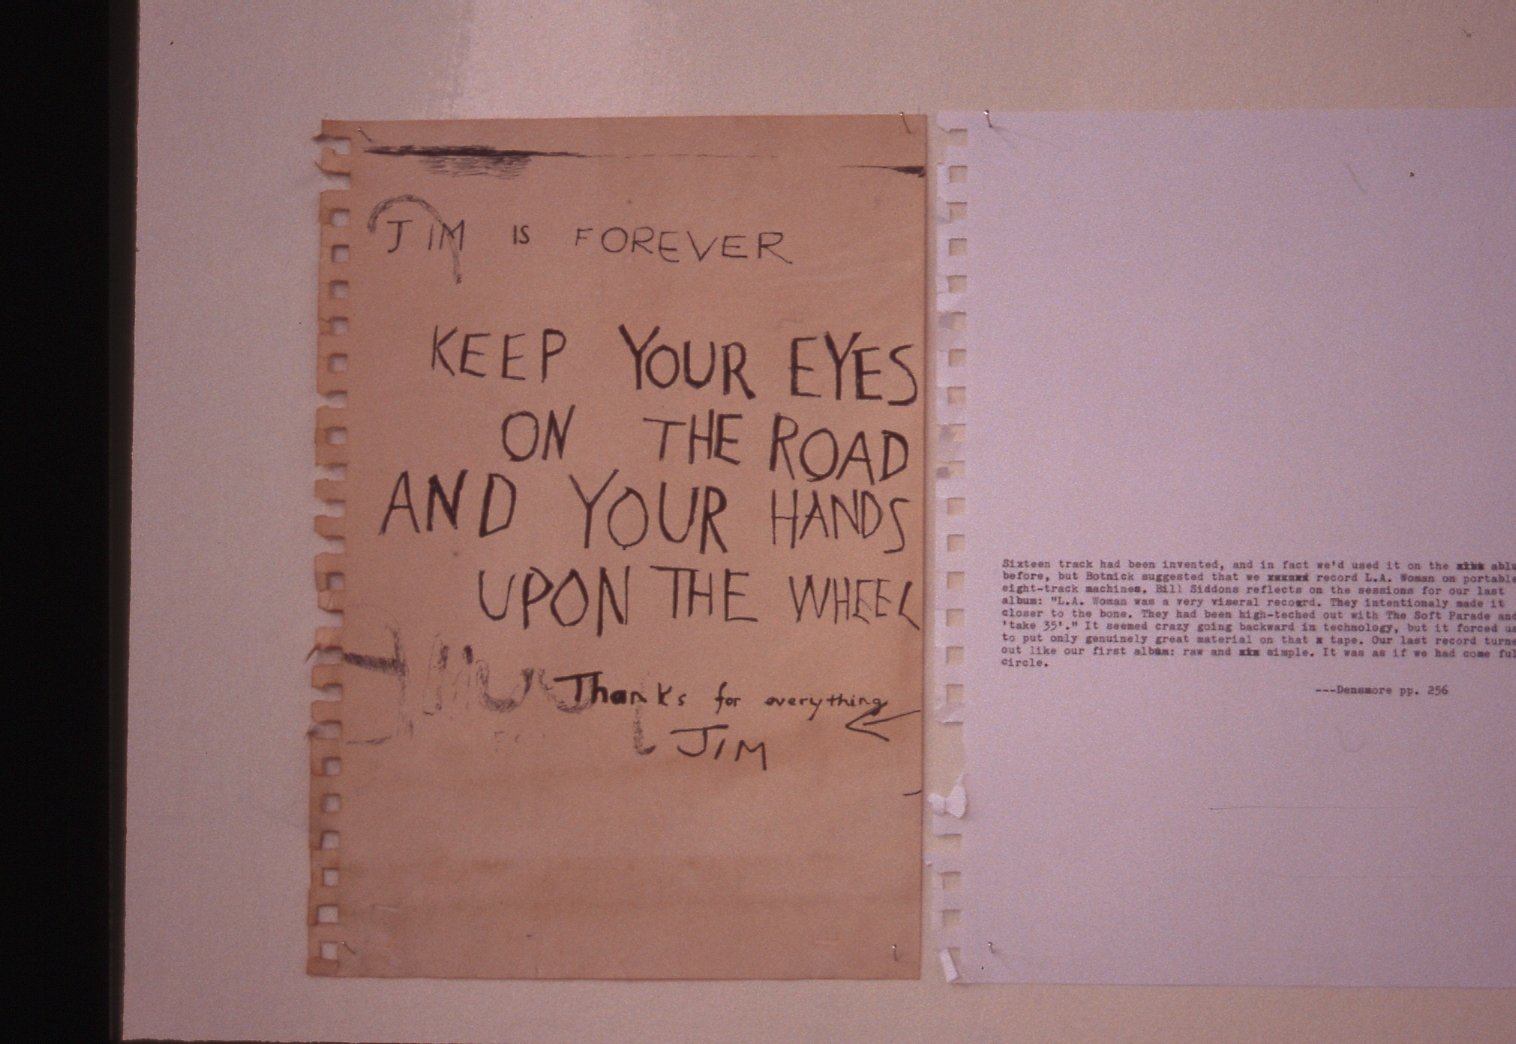 JIM IS FOREVER
KEEP YOUR EYES
ON THE ROAD
AND YOUR HANDS
UPON THE WHEEL
Thanks for everything
JIM
Sixteen track had been invented, and in fact we'd used it on the albu
before, but Botnick suggested that we record L.A. Woman on portable
eight-track machines. Bill Siddons reflects on the sessions for our last
album: "L.A. Woman was a very visceral record. They intentionaly made it
closer to the bone. They had been high-teched out with The Soft Parade and
'take 35'." It seemed crazy going backward in technology, but it forced us
to put only genuinely great material on that tape. Our last record turne
out like our first album: raw and simple. It was as if we had come ful
circle.
---Densmore pp. 256